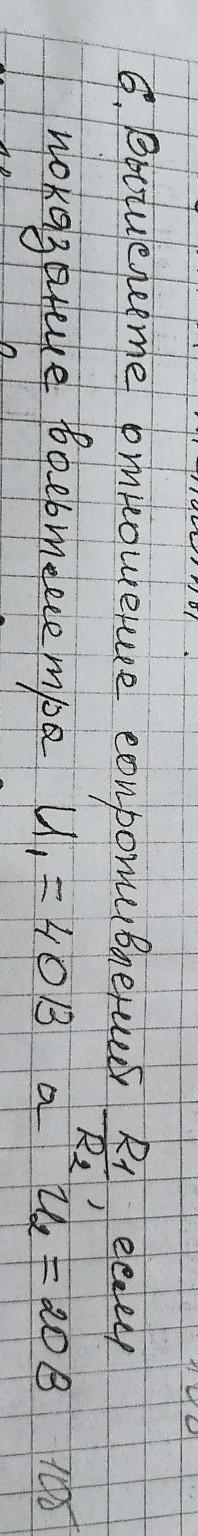 6. Вычислите отношение сопротивлений R1/R2, если
показание вольтметра U1 = 40В а U2 = 20В 10б